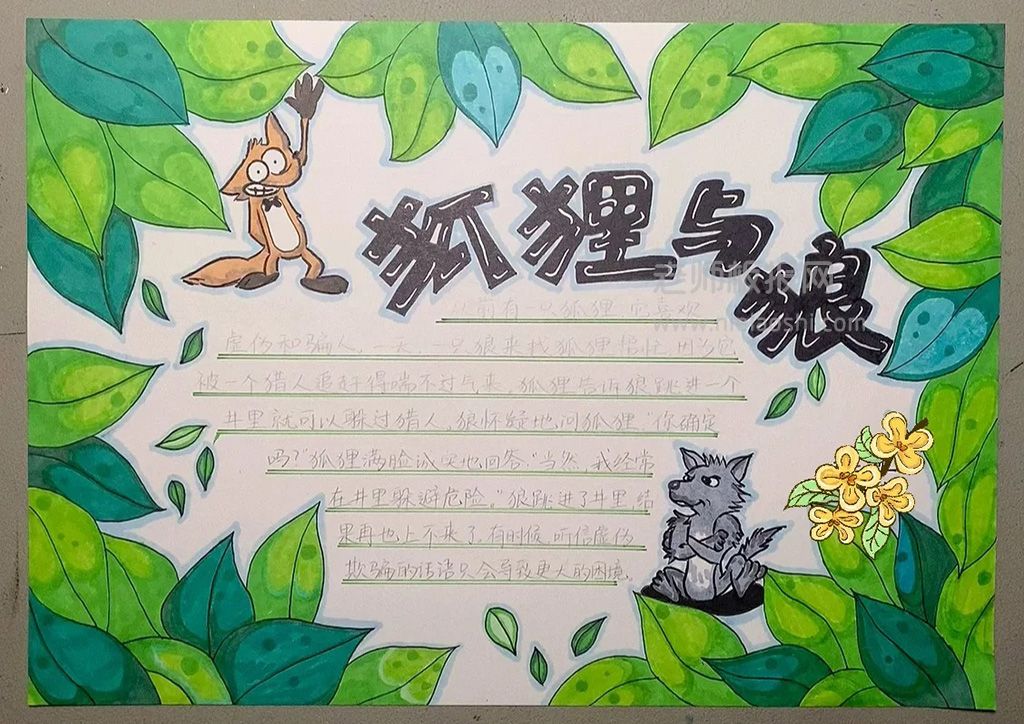 狐狸与狼
老师板报网
从前有一只狐狸,它喜欢
虚伪和骗人,一天,一只狼来找狐狸帮忙,因为它
被一个猎人追赶得喘不过气来。狐狸告诉狼跳进一个
井里就可以躲过猎人。狼怀疑地问狐狸:“你确定
吗?”狐狸满脸诚实地回答:“当然,我经常
在井里躲避危险。”狼跳进了井里,结
果再也上不来了。有时候,听信虚伪
欺骗的话语只会导致更大的困境。